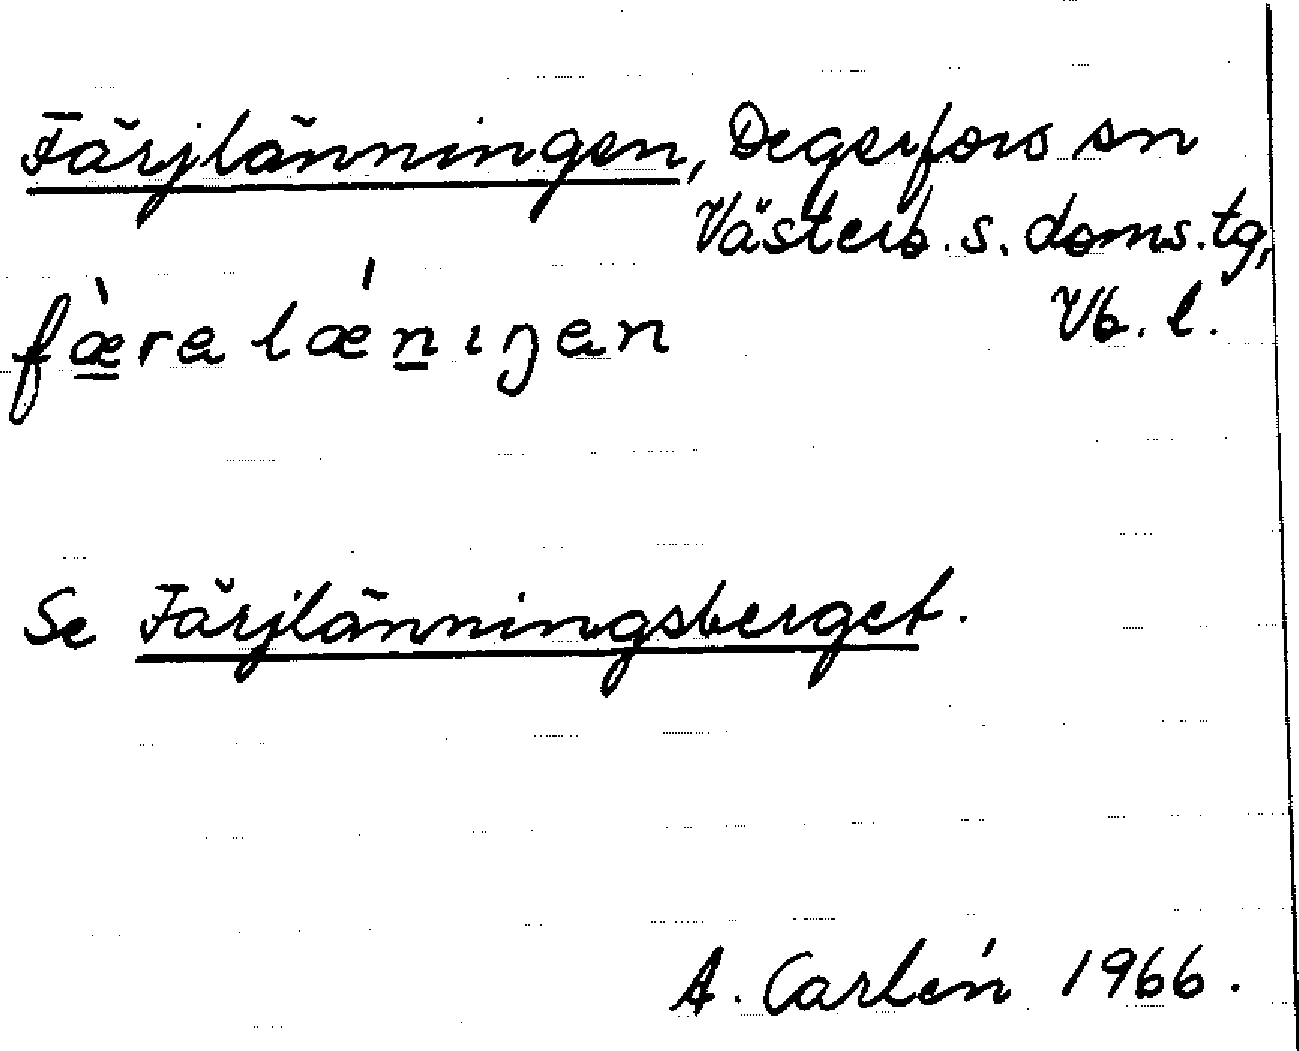 Färjlänningen, Degerfors sn
Västerb. s. doms. tg,
Vb. l.
fæ̀ra lǽnıŋen
Se Färjlänningsberget.
A. Carlén 1966.